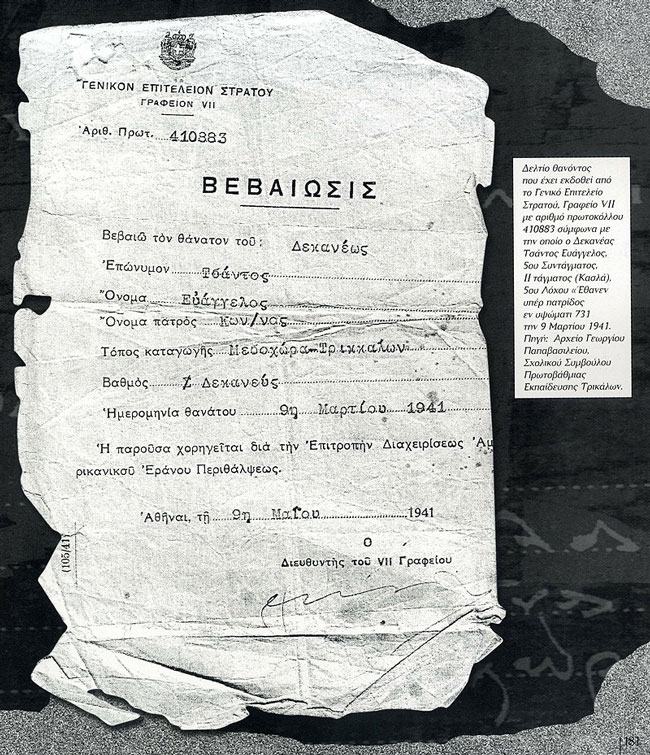 ΓΕΝΙΚΟΝ ΕΠΙΤΕΛΕΙΟΝ ΣΤΡΑΤΟΥ
ΓΡΑΦΕΙΟΝ VII
Ἀριθ. Πρωτ. 410883
ΒΕΒΑΙΩΣΙΣ
Βεβαιῶ τὸν θάνατον τοῦ: Δεκανέως
Ἐπώνυμον Τσάντος
Ὄνομα Εὐάγγελος
Ὄνομα πατρὸς Κων/νος
Τόπος καταγωγῆς Μεσοχώρα-Τρικκαίων
Βαθμὸς Δεκανεύς
Ἡμερομηνία θανάτου 9η Μαρτίου 1941
Ἡ παροῦσα χορηγεῖται διὰ τὴν Ἐπιτροπὴν Διαχειρίσεως Ἀμ
ρικανικοῦ Ἐράνου Περιθάλψεως.
Ἀθῆναι, τῇ 9η Μαΐου 1941
Ο
Διευθυντὴς τοῦ VII Γραφείου
(105/41)
Δελτίο θανόντος
που έχει εκδοθεί από
το Γενικό Επιτελείο
Στρατού, Γραφείο VII
με αριθμό πρωτοκόλλου
410883 σύμφωνα με
την οποίο ο Δεκανέας
Τσάντος Ευάγγελος,
5ου Συντάγματος,
ΙΙ τάγματος (Κασλά),
5ου Λόχου «Έθανεν
υπέρ πατρίδος
εν υψώματι 731
την 9 Μαρτίου 1941.
Πηγή: Αρχείο Γεωργίου
Παπαβασιλείου,
Σχολικού Συμβούλου
Πρωτοβάθμιας
Εκπαίδευσης Τρικάλων.